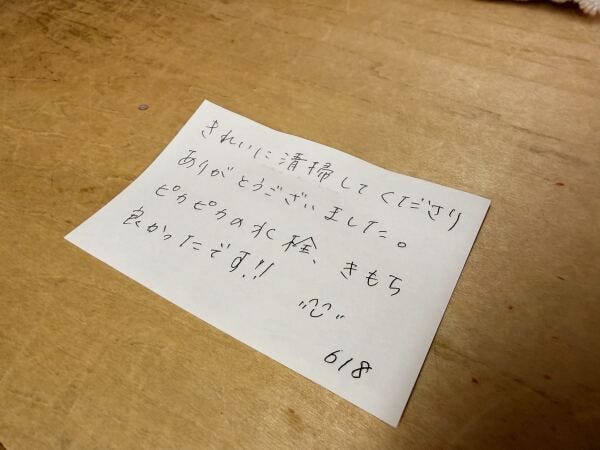 きれいに清掃してくださり
ありがとうございました。
ピカピカの水栓、きもち
良かったです!!
618